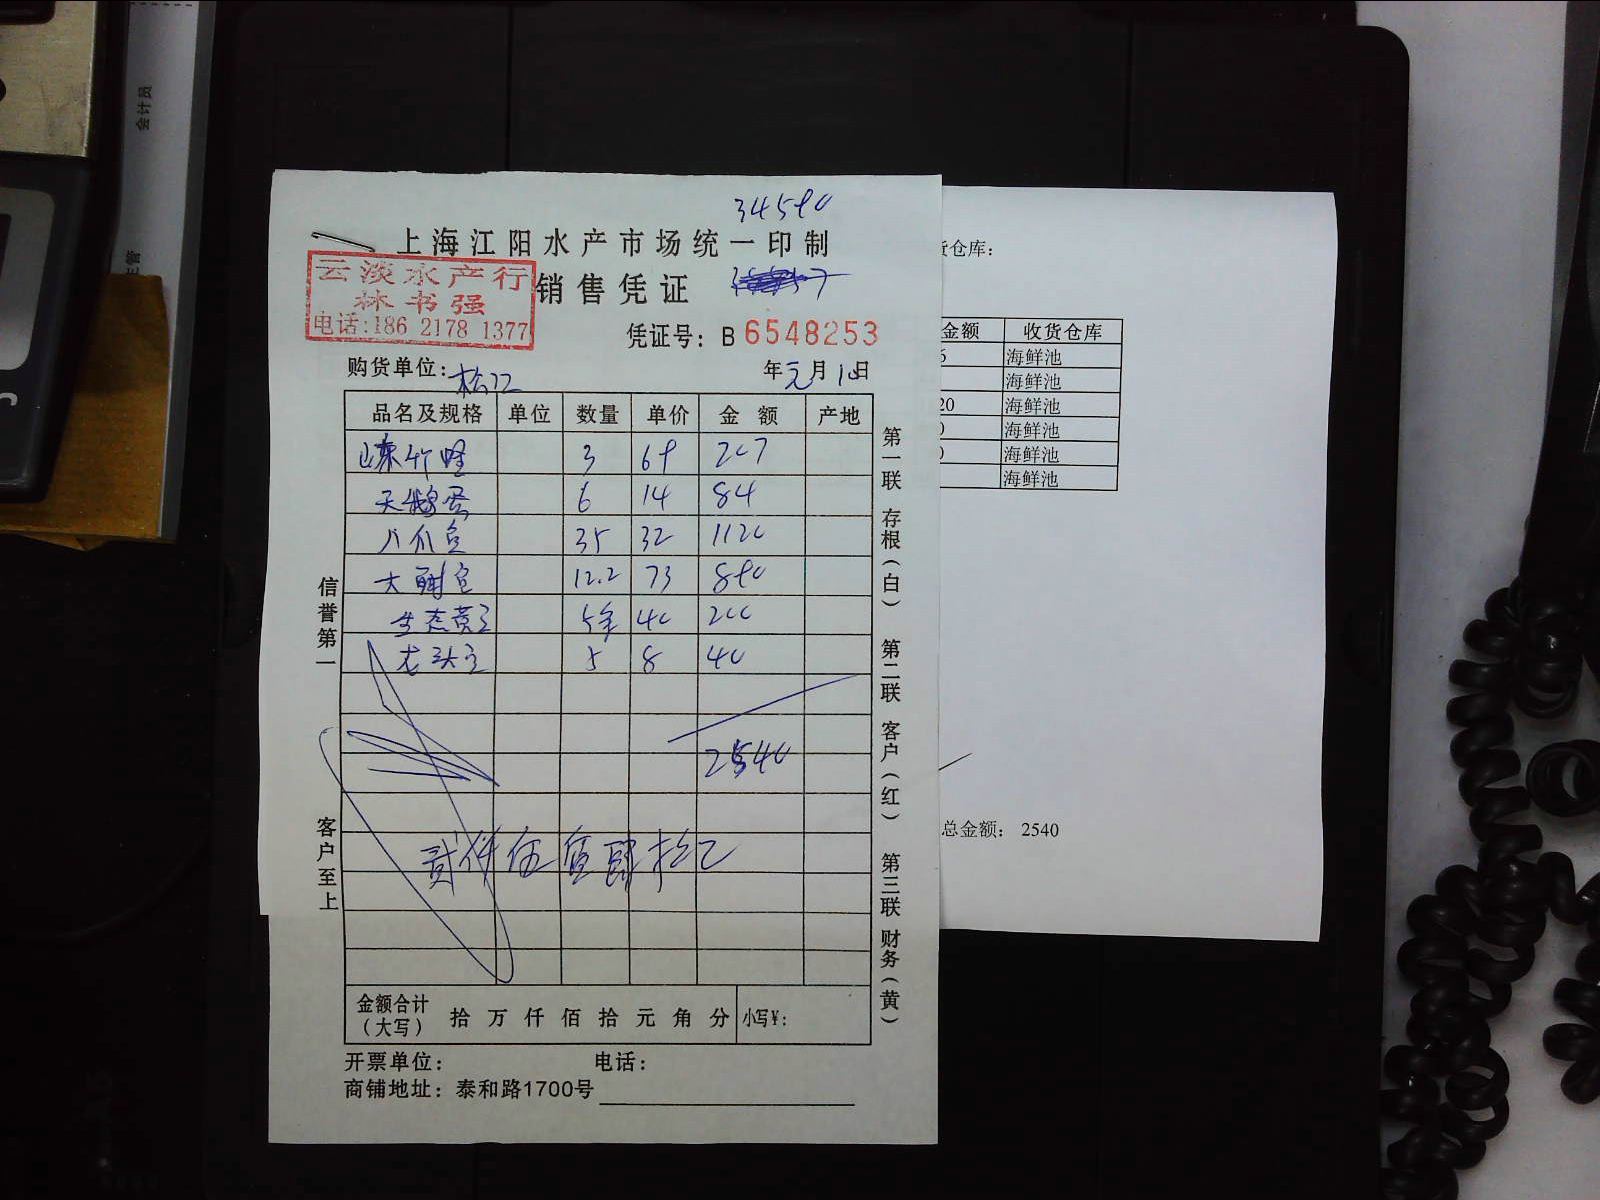 会计员
主管
34590
上海江阳水产市场统一印制
云淡水产行
林书强
电话:186 2178 1377
销售凭证
凭证号: B 6548253
购货单位: 松江
年元月10日
品名及规格 单位 数量 单价 金额 产地
山东竹蛏 3 69 207
天鹅蛋 6 14 84
八爪鱼 35 32 1120
大鲍 12.2 73 890
生态黄 5 40 200
龙头 5 8 40
2540
贰仟伍佰肆拾
金额合计
(大写) 拾万仟佰拾元角分 小写¥:
开票单位: 电话:
商铺地址: 泰和路1700号
信誉第一
客户至上
第一联 存根(白)
第二联 客户(红)
第三联 财务(黄)
货仓库:
金额 收货仓库
6 海鲜池
海鲜池
20 海鲜池
0 海鲜池
0 海鲜池
海鲜池
总金额: 2540